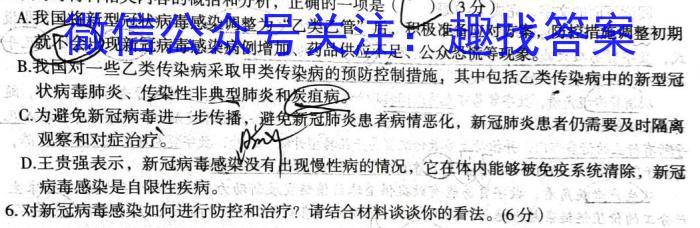 对材料相关内容的概括和分析，正确的一项是（ ）（3分）
A.我国将新型冠状病毒感染调整为“乙类乙管”后，积极准备应对方案，防控措施调整初期
就不会出现新冠病毒感染病例增加、药品供应不足、公众恐慌等现象。
微信公众号关注：趣找答案
B.我国对一些乙类传染病采取甲类传染病的预防控制措施，其中包括乙类传染病中的新型冠
状病毒肺炎、传染性非典型肺炎和炭疽病。
C.为避免新冠病毒进一步传播，避免新冠肺炎患者病情恶化，新冠肺炎患者仍需要及时隔离
观察和对症治疗。
D.王贵强表示，新冠病毒感染没有出现慢性病的情况，它在体内能够被免疫系统清除，新冠
病毒感染是自限性疾病。
6.对新冠病毒感染如何进行防控和治疗？请结合材料谈谈你的看法。(6分)